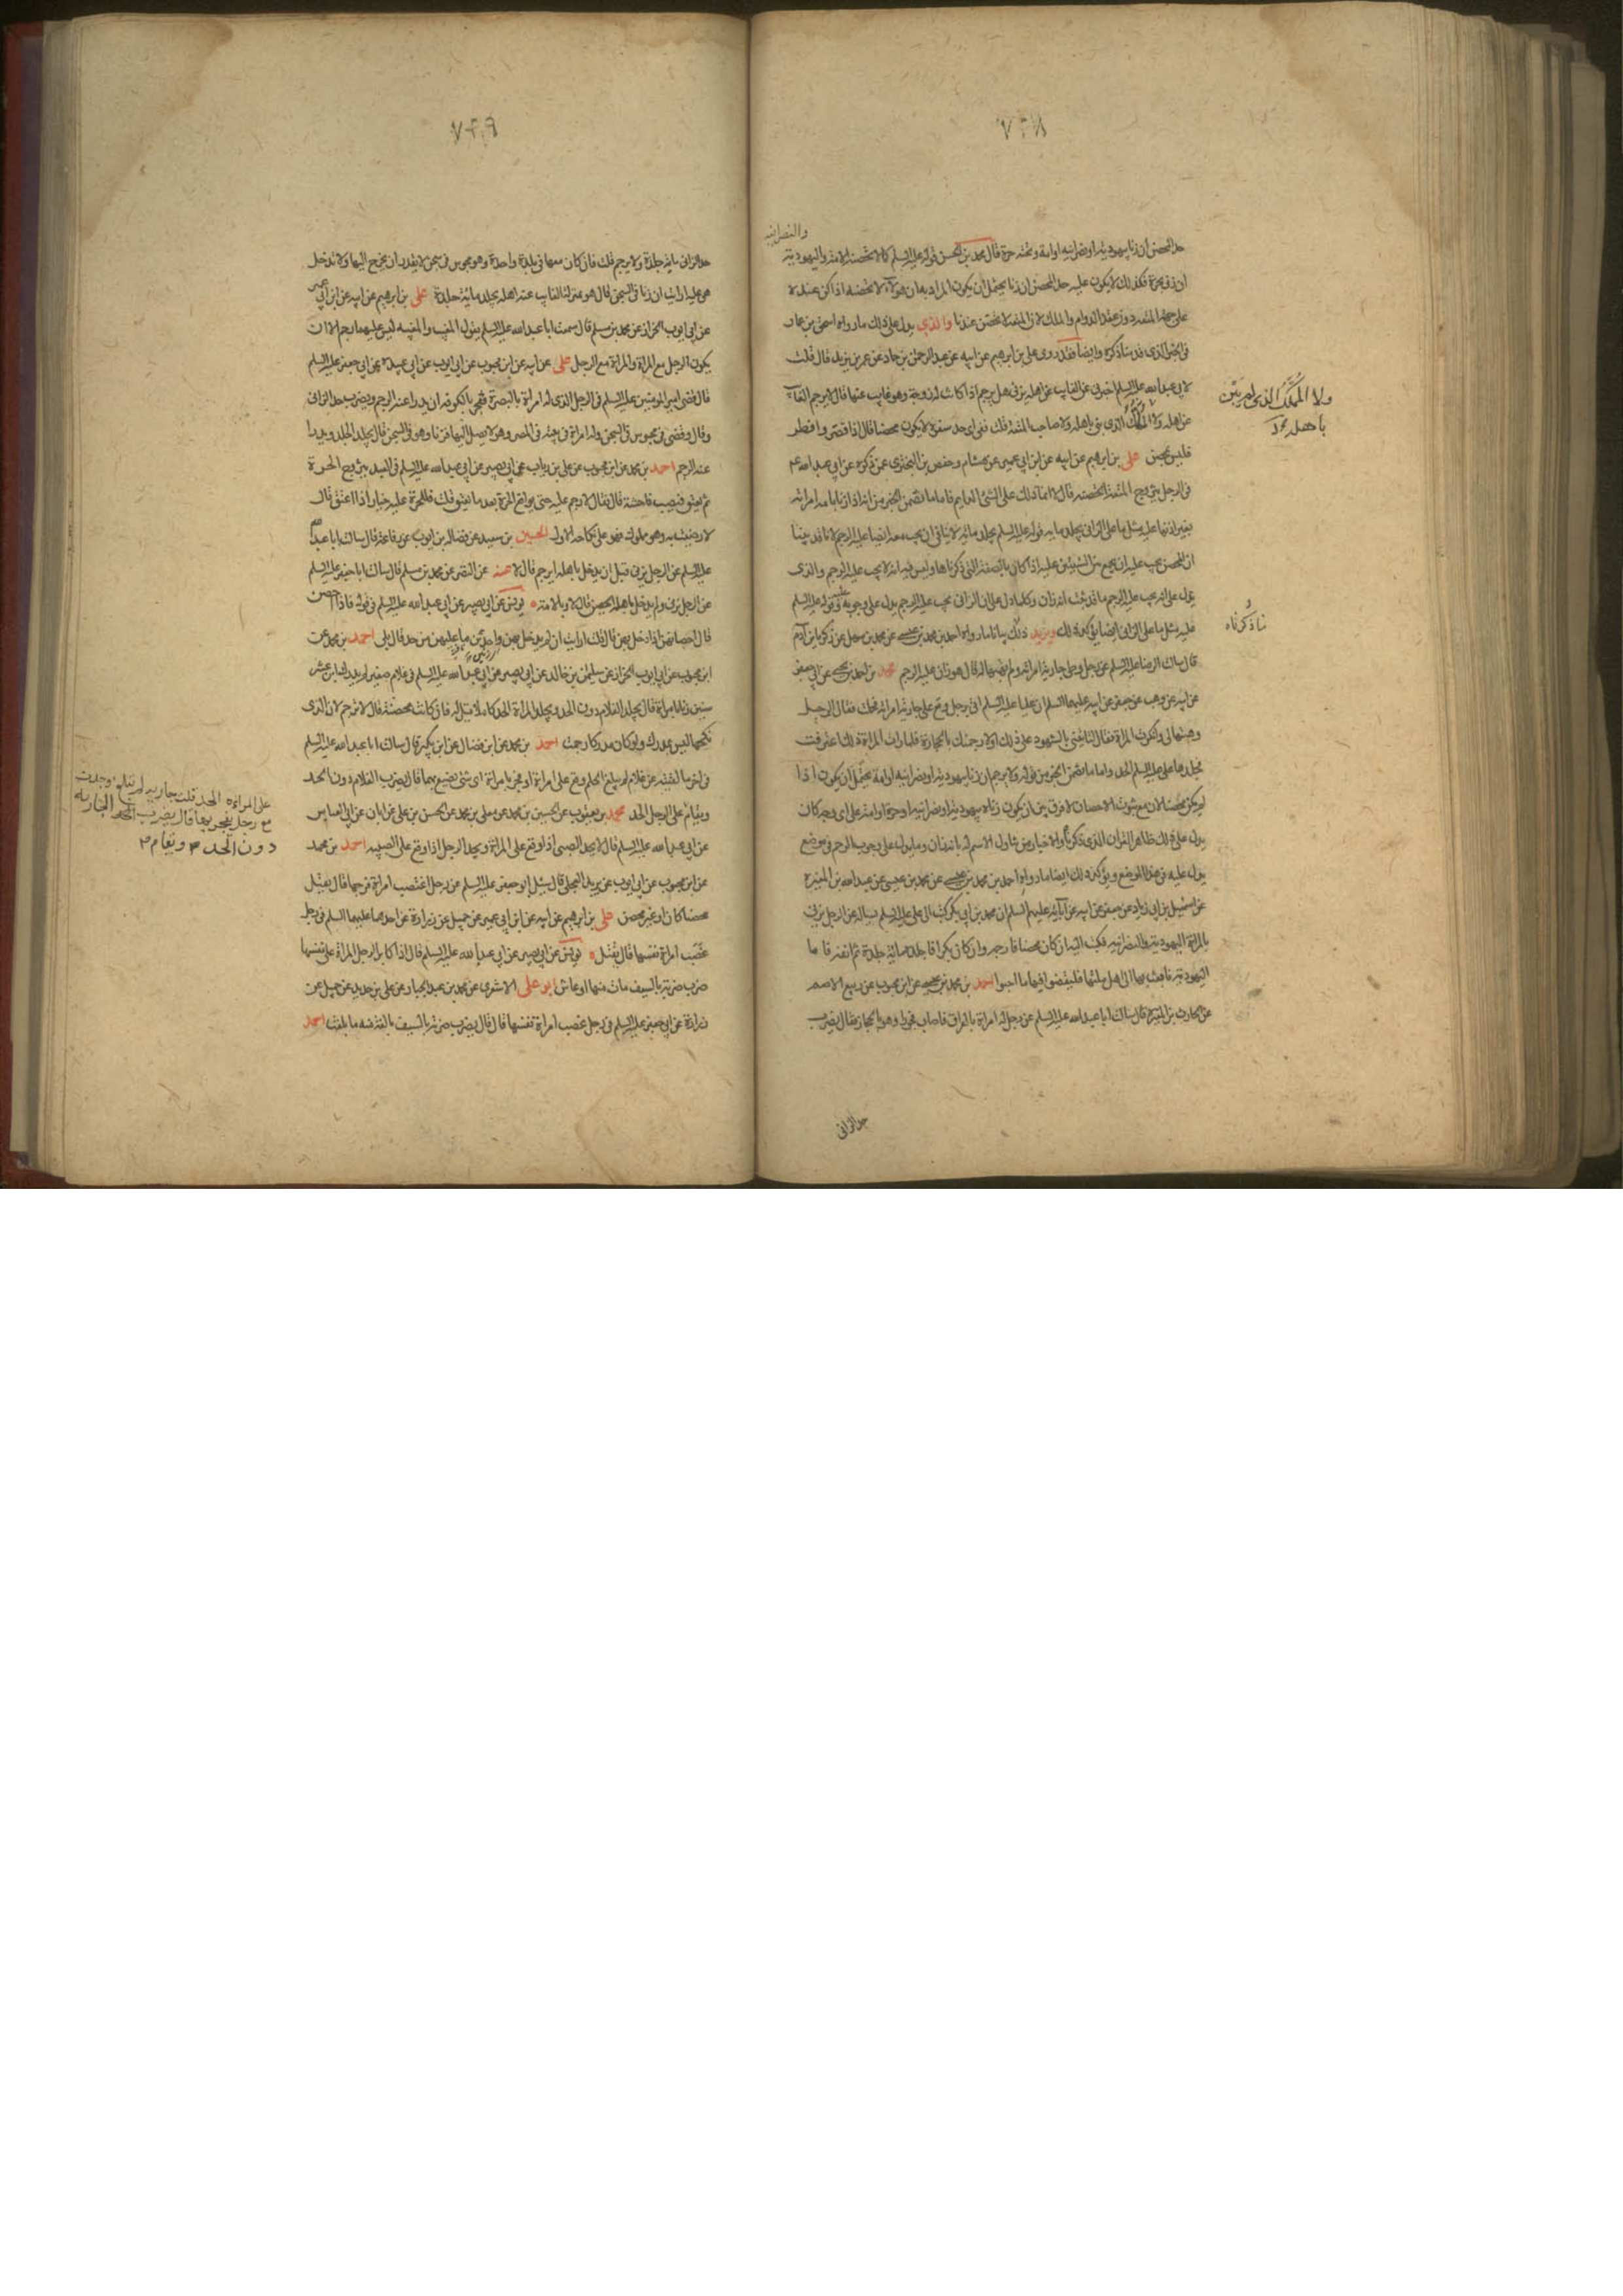 ٧٣٨
والنصرانیه
حد المحصن ان زنا بیهودیة او نصرانیة او امة وتحته حرة قال محمد بن الحسن قوله علیه السلم کما لا تحصنه الامة والیهودیة
ان زنی بحرة فکذلک لا یکون علیه حد المحصن ان زنا یحتمل ان یکون المراد به ان هؤلاء لا تحصنه اذا کن عنده
علی جهة المتعة دون عقد الدوام والملک لان المتعة لا تحصن عندنا والذی یدل علی ذلک ما رواه اسحق بن عمار
فی الخبر الذی قدمنا ذکره وایضا فقد روی علی بن ابرهیم عن ابیه عن عبد الرحمن بن حماد عن عمر بن یزید قال قلت
لابی عبد الله علیه السلم اخبرنی عن الغایب عن اهله یزنی هل یرجم اذا کانت له زوجة وهو غایب عنها قال لا یرجم الغایب
عن اهله ولا المملک الذی لم یبن باهله ولا صاحب المتعة قلت ففی ای حد سفره لا یکون محصنا قال اذا قصر وافطر
ولا المُمْلَک الذی لم یَبْنِ
باهله
فلیس بمحصن علی بن ابرهیم عن ابیه عن ابن ابی عمیر عن هشام وحفص بن البختری عمن ذکره عن ابی عبد الله ع
فی الرجل یتزوج المتعة اتحصنه قال لا انما ذلک علی الشئ الدایم فاما ما تضمن الخبر من انه اذا زنا بامة امراته
بغیر اذنها علیه مثل ما علی الزانی یجلد مایة قوله علیه السلم یجلد مائة لا ینافی ان یجب معه ایضا علیه الرجم لانا قد بینا
ان المحصن یجب علیه ان یجمع بین الشیئین علیه اذا کان بالصفة التی ذکرناها ولیس فیه انه لا یجب علیه الرجم والذی
یدل علی انه یجب علیه الرجم ما قد ثبت انه زان وکلما دل علی ان الزانی یجب علیه الرجم یدل علی وجوبه علیه وقوله علیه السلم
ما ذکرناه
علیه مثل ما علی الزانی ایضا یؤکد ذلک ویزید ذلک بیانا ما رواه احمد بن محمد بن عیسی عن محمد بن سهل عن زکریا بن آدم
قال سالت الرضا علیه السلم عن رجل وطی جاریة امراته ولم تهبها له قال هو زان علیه الرجم محمد بن احمد بن یحیی عن ابی جعفر
عن ابیه عن وهب عن جعفر عن ابیه علیهما السلم ان علیا علیه السلم اتی برجل وقع علی جاریة امراته فحملت فقال الرجل
وهبتها لی وانکرت المراة فقال لتاتینی بالشهود علی ذلک او لارجمنک بالحجارة فلما رات المراة ذلک اعترفت
فجلدها علی علیه السلم الحد واما ما تضمن الخبر من قوله ولا یرجم ان زنا بیهودیة او نصرانیة او امة یحتمل ان یکون اذا
لم یکن محصنا لان مع ثبوت الاحصان لا فرق بین ان یکون زناه بیهودیة او نصرانیة او حرة او امة علی ای وجه کان
یدل علی ذلک ظاهر القران الذی ذکرناه والاخبار من تناول الاسم له بانه زان وما یدل علی وجوب الرجم فی موضع
یدل علیه فی هذا الموضع ویؤکد ذلک ایضا ما رواه احمد بن محمد بن عیسی عن محمد بن عیسی عن عبد الله بن المغیرة
عن اسمعیل بن ابی زیاد عن جعفر عن ابیه عن آبائه علیهم السلم ان محمد بن ابی بکر کتب الی علی علیه السلم یساله عن الرجل یزنی
بالمراة الیهودیة والنصرانیة فکتب الیه ان کان محصنا فارجمه وان کان بکرا فاجلده مائة جلدة ثم انفه فاما
الیهودیة فابعث بها الی اهل ملتها فلیقضوا فیها ما احبوا احمد بن محمد بن عیسی عن ابن محبوب عن ربیع الاصم
عن الحارث بن المغیرة قال سالت ابا عبد الله علیه السلم عن رجل له امراة بالعراق فاصاب فجورا وهو بالحجاز فقال یضرب
حد الزانی
٧٣٩
حد الزانی مایة جلدة ولا یرجم قلت فان کان معها فی بلدة واحدة وهو محبوس فی سجن لا یقدر ان یخرج الیها ولا تدخل
هی علیه ارایت ان زنا فی السجن قال هو بمنزلة الغایب عنه اهله یجلد مائة جلدة علی بن ابرهیم عن ابیه عن ابن ابی عمیر
عن ابی ایوب الخزاز عن محمد بن مسلم قال سمعت ابا عبد الله علیه السلم یقول المغیب والمغیبة لیس علیهما رجم الا ان
یکون الرجل مع المراة والمراة مع الرجل علی عن ابیه عن ابن محبوب عن ابی ایوب عن ابی عبیدة عن ابی جعفر علیه السلم
قال قضی امیر المؤمنین علیه السلم فی الرجل الذی له امراة بالبصرة ففجر بالکوفه ان یدرا عنه الرجم ویضرب حد الزانی
وقال وقضی فی محبوس فی السجن وله امراة فی بیته فی المصر وهو لا یصل الیها فزنا وهو فی السجن قال یجلد الجلد ویدرا
عنه الرجم احمد بن محمد عن ابن محبوب عن علی بن رئاب عن ابی بصیر عن ابی عبد الله علیه السلم فی العبد یتزوج الحرة
ثم یعتق فیصیب فاحشة قال فقال لا رجم علیه حتی یواقع الحرة بعد ما یعتق قلت فللحرة علیه خیار اذا اعتق قال
لا رضیت به وهو مملوک فهو علی نکاحه الاول الحسین بن سعید عن فضالة بن ایوب عن رفاعة قال سالت ابا عبد الله
علیه السلم عن الرجل یزنی قبل ان یدخل باهله ایرجم قال لا عنه عن النضر عن محمد بن مسلم قال سالت ابا جعفر علیه السلم
عن الرجل یزنی ولم یدخل باهله ایحصن قال لا ولا بالامة یونس عن ابی بصیر عن ابی عبد الله علیه السلم فی قوله فاذا احصن
قال احصانهن اذا دخل بهن قال قلت ارایت ان لم یدخل بهن واحدثن ما علیهن من حد قال بلی احمد بن محمد عن
ابن محبوب عن ابی ایوب الخزاز عن سلیمن بن خالد عن ابی بصیر عن ابی عبد الله علیه السلم فی غلام صغیر لم یدرک ابن عشر
سنین زنا بامراة قال یجلد الغلام دون الحد وتجلد المراة الحد کاملا قیل له فان کانت محصنة قال لا ترجم لان الذی
نکحها لیس بمدرک ولو کان مدرکا رجمت احمد بن محمد عن ابن فضال عن ابن بکیر قال سالت ابا عبد الله علیه السلم
فی اخر ما لقیته عن غلام لم یبلغ الحلم وقع علی امراة او فجر بامراة ای شئ یصنع بهما قال یضرب الغلام دون الحد
ویقام علی المراءة الحد قلت جاریه لم تبلغ وجدت
مع رجل یفجر بها قال یضرب الجاریه
دون الحد ویقام
ویقام علی الرجل الحد محمد بن یعقوب عن الحسین بن محمد عن معلی بن محمد عن الحسن بن علی عن ابان عن ابی العباس
عن ابی عبد الله علیه السلم قال لا یحد الصبی اذا وقع علی المراة ویحد الرجل اذا وقع علی الصبیه احمد بن محمد
عن ابن محبوب عن ابی ایوب عن برید العجلی قال سئل ابو جعفر علیه السلم عن رجل اغتصب امراة فرجها قال یقتل
محصنا کان او غیر محصن علی بن ابرهیم عن ابیه عن ابن ابی عمیر عن جمیل عن زرارة عن احدهما علیهما السلم فی رجل
غصب امراة نفسها قال یقتل یونس عن ابی بصیر عن ابی عبد الله علیه السلم قال اذا کابر الرجل المراة علی نفسها
ضرب ضربة بالسیف مات منها او عاش ابو علی الاشعری عن محمد بن عبد الجبار عن علی بن حدید عن جمیل عن
زرارة عن ابی جعفر علیه السلم فی رجل غصب امراة نفسها قال قال یضرب ضربة بالسیف بالغة منه ما بلغت احمد